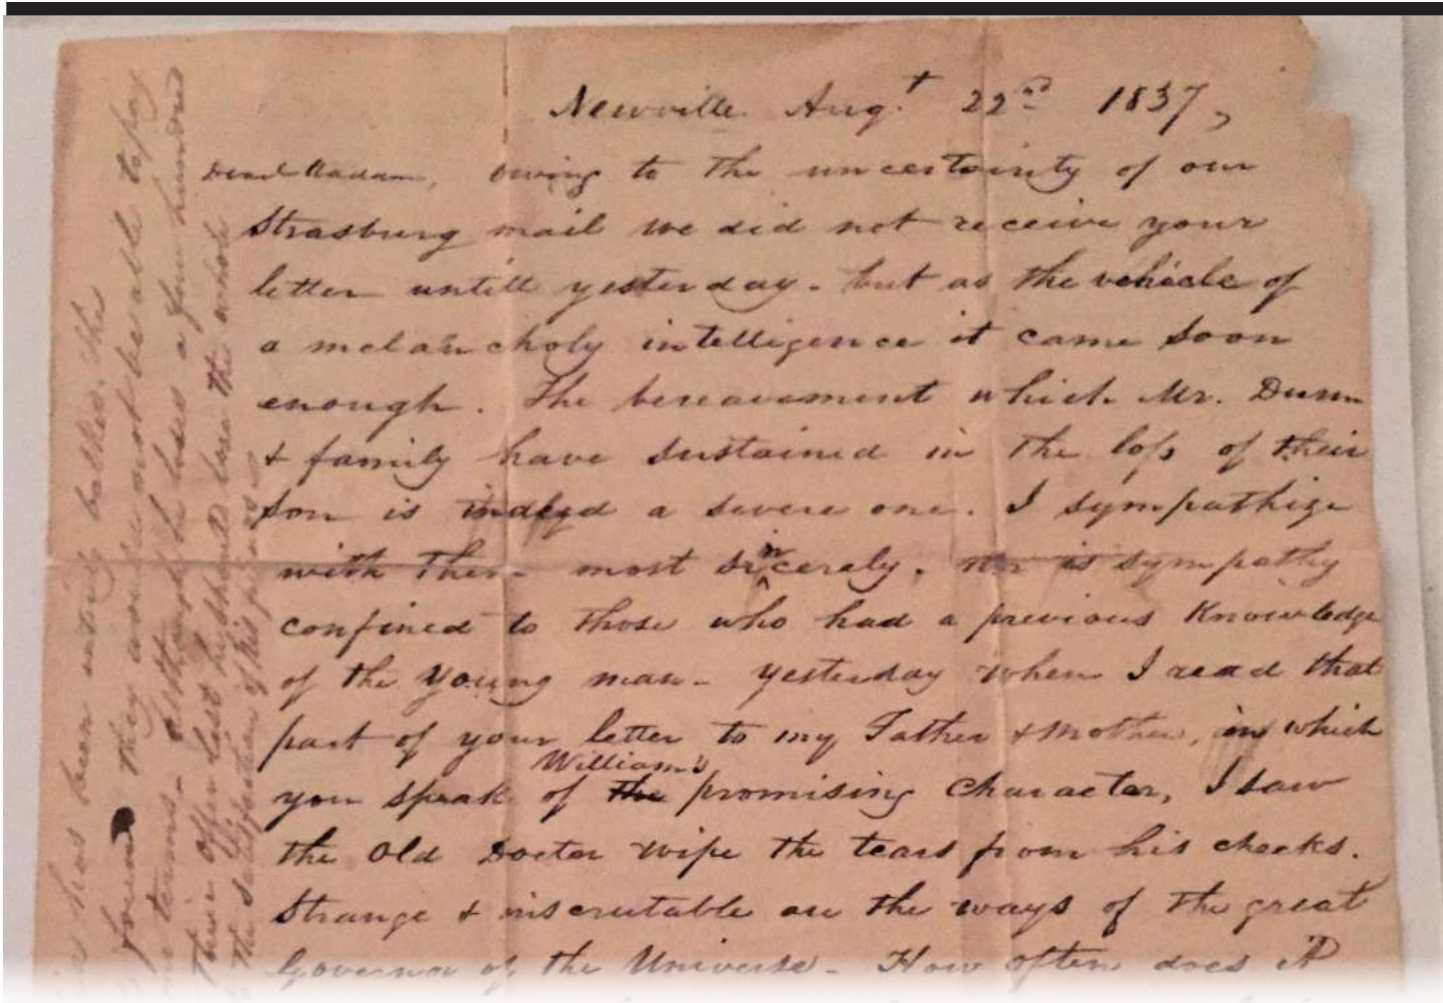 Newville Aug.t 22nd 1837,
Dear Madam, Owing to the uncertainty of our
Strasburg mail we did not receive your
letter untill yesterday - but as the vehicle of
a melancholy intelligence it came soon
enough. The bereavement which Mr. Dunn
& family have sustained in the loss of their
son is indeed a severe one. I sympathize
with them most sincerely. Nor is sympathy
confined to those who had a previous Knowledge
of the Young man - yesterday when I read that
part of your letter to my Father & Mother, in which
William's
you speak of the promising Character, I saw
the Old Docter wipe the tears from his cheeks.
Strange & inscrutable are the ways of the great
Governor of the Universe - How often does it
has been entirely the
found they would not be able to pay
terms - Although he loses a few hundred
their offer last he should lose the whole
the satisfaction of his